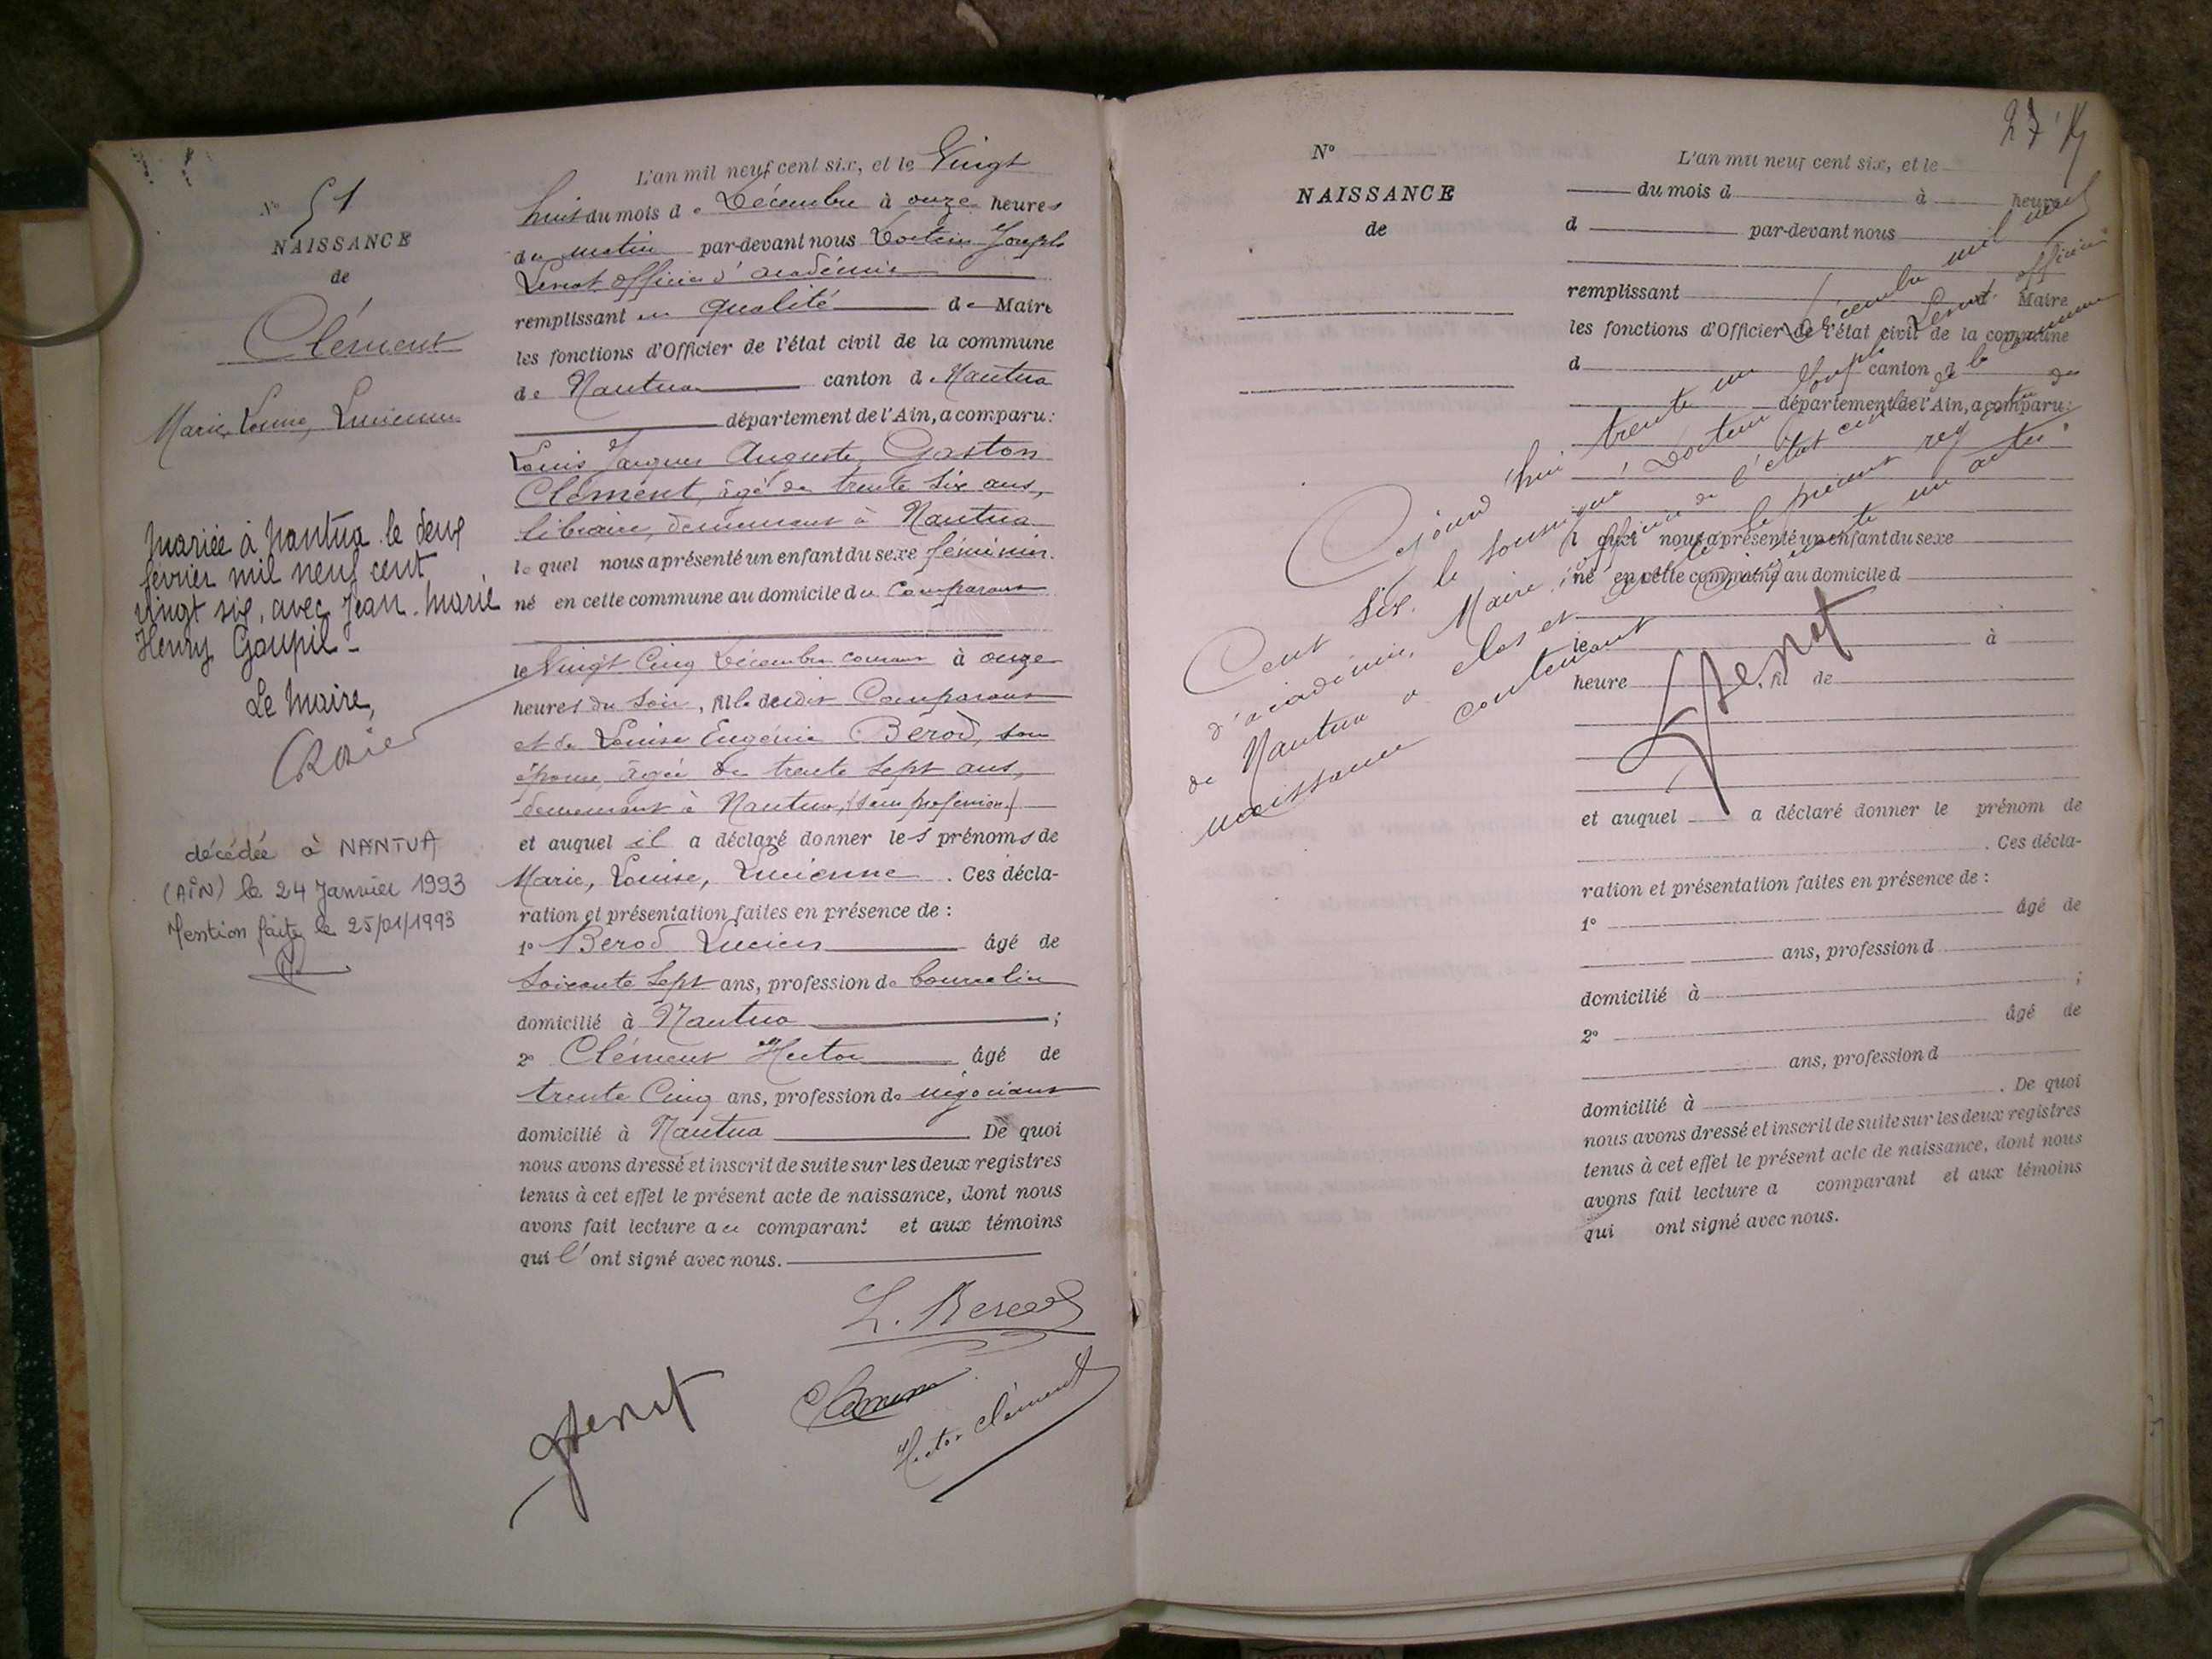 N° 51
NAISSANCE
de
Clément
Marie, Louise, Lucienne
Mariée à Nantua le deux
février mil neuf cent
vingt six, avec Jean-Marie
Henry Goupil-
Le Maire,
décédée à NANTUA
(AIN) le 24 Janvier 1993
Mention faite le 25/01/1993
L'an mil neuf cent six, et le Vingt
huit du mois de Décembre à onze heures
du matin par-devant nous Docteur Joseph
officier d'académie
remplissant en qualité de Maire
les fonctions d'Officier de l'état civil de la commune
de Nantua canton de Nantua
département de l'Ain, a comparu:
Louis Jacques Auguste Gaston
Clément, âgé de trente six ans,
libraire, demeurant à Nantua
lequel nous a présenté un enfant du sexe féminin.
né en cette commune au domicile du Comparant
le Vingt Cinq Décembre courant à onze
heures du soir, fille dudit Comparant
et de Louise Eugénie Bérod, son
épouse, âgée de trente sept ans,
demeurant à Nantua, (sans profession)
et auquel il a déclaré donner les prénoms de
Marie, Louise, Lucienne. Ces décla-
ration et présentation faites en présence de :
1° Berod Lucien âgé de
soixante sept ans, profession de bourrelier
domicilié à Nantua ;
2° Clément Hector âgé de
trente Cinq ans, profession de négociant
domicilié à Nantua De quoi
nous avons dressé et inscrit de suite sur les deux registres
tenus à cet effet le présent acte de naissance, dont nous
avons fait lecture au comparant et aux témoins
qui l'ont signé avec nous.
L. Berod
Clément
Hector Clément
27
N°
NAISSANCE
de
L'an mil neuf cent six, et le
du mois d à heure
d par-devant nous
remplissant Maire
les fonctions d'Officier de l'état civil de la commune
d canton d
département de l'Ain, a comparu:
l quel nous a présenté un enfant du sexe
né en cette commune au domicile d
le à
heure , fil de
et auquel a déclaré donner le prénom de
. Ces décla-
ration et présentation faites en présence de :
1° âgé de
ans, profession d
domicilié à ;
2° âgé de
ans, profession d
domicilié à . De quoi
nous avons dressé et inscrit de suite sur les deux registres
tenus à cet effet le présent acte de naissance, dont nous
avons fait lecture a comparant et aux témoins
qui ont signé avec nous.
Cejourd'hui trente un Décembre mil neuf
Cent six, le soussigné Docteur Joseph officier
d'académie, Maire, officier de l'état civil de la commune
de Nantua a clos et le présent registre de
naissance contenant Cinquante un actes